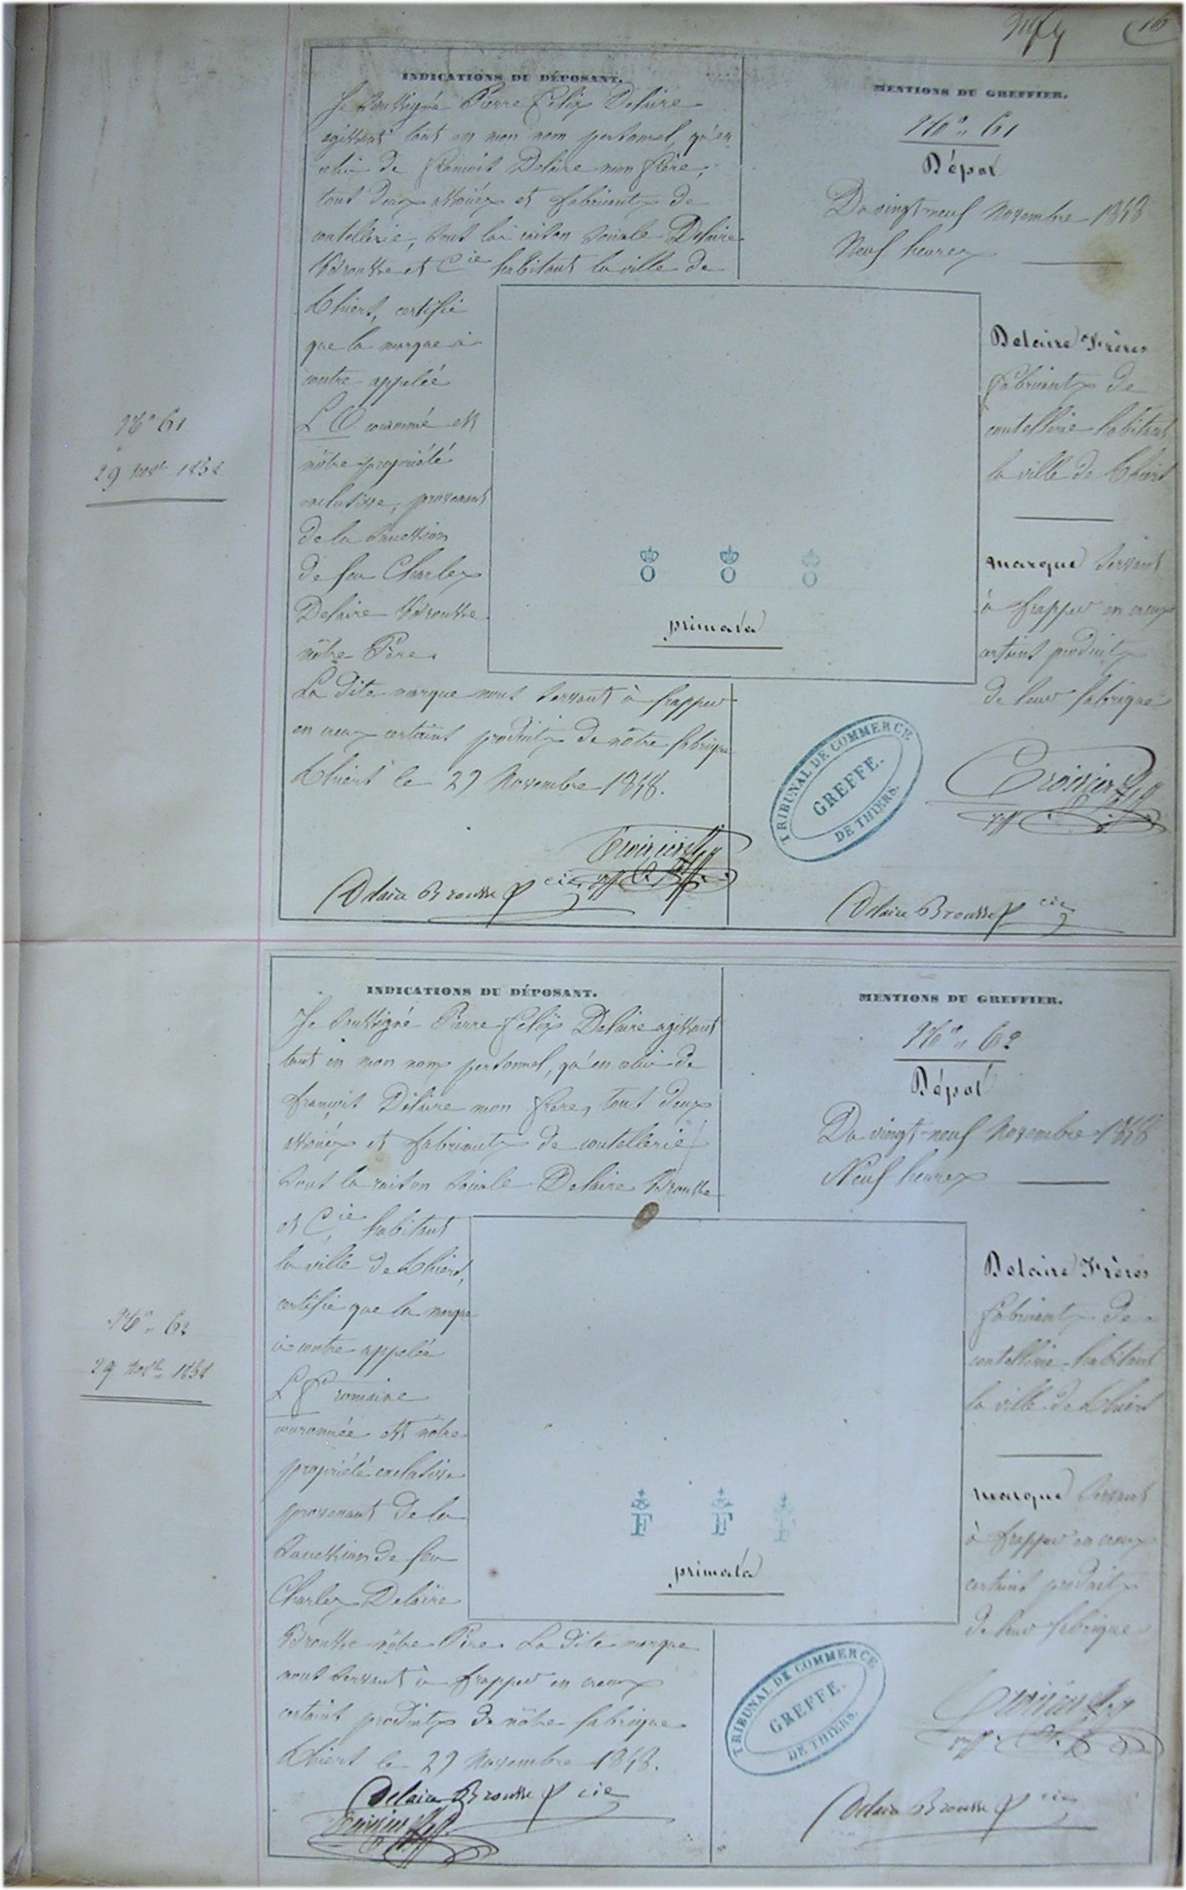 16
INDICATIONS DU DÉPOSANT.
Je soussigné Pierre Félix Delaire
agissant tant en mon nom personnel, qu'en
celui de François Delaire mon frère,
tous deux associés et fabricants de
coutellerie, sous la raison sociale Delaire
Brousse et Cie habitant la ville de
Thiers, certifie
que la marque ci
contre appelée
L'O couronné est
nôtre propriété
exclusive, provenant
de la succession
de feu Charles
Delaire Brousse
nôtre Père.
La dite marque nous servant à frapper
en creux certains produits de nôtre fabrique
Thiers le 29 Novembre 1858.
Delaire Brousse & cie
MENTIONS DU GREFFIER.
No. 61
Dépot
Du vingt-neuf Novembre 1858
Neuf heures
Delaire Frères
fabricants de
coutellerie habitant
la ville de Thiers
marque servant
à frapper en creux
certains produits
de leur fabrique
Delaire Brousse & cie
O O O
primata
TRIBUNAL DE COMMERCE
GREFFE.
DE THIERS.
No 61
29 nov. 1858
INDICATIONS DU DÉPOSANT.
Je soussigné Pierre Félix Delaire agissant
tant en mon nom personnel, qu'en celui de
François Delaire mon frère, tous deux
associés et fabricants de coutellerie
sous la raison sociale Delaire Brousse
et Cie, habitant
la ville de Thiers,
certifie que la marque
ci contre appelée
L'F romaine
couronnée est nôtre
propriété exclusive
provenant de la
succession de feu
Charles Delaire
Brousse nôtre Père. La dite marque
nous servant à frapper en creux
certains produits de nôtre fabrique
Thiers le 29 Novembre 1858.
Delaire Brousse & cie
MENTIONS DU GREFFIER.
No. 62
Dépot
Du vingt-neuf Novembre 1858
Neuf heures
Delaire Frères
fabricants de
coutellerie habitant
la ville de Thiers
marque servant
à frapper en creux
certains produits
de leur fabrique
Delaire Brousse & cie
F F F
primata
TRIBUNAL DE COMMERCE
GREFFE.
DE THIERS.
No. 62
29 nov. 1858